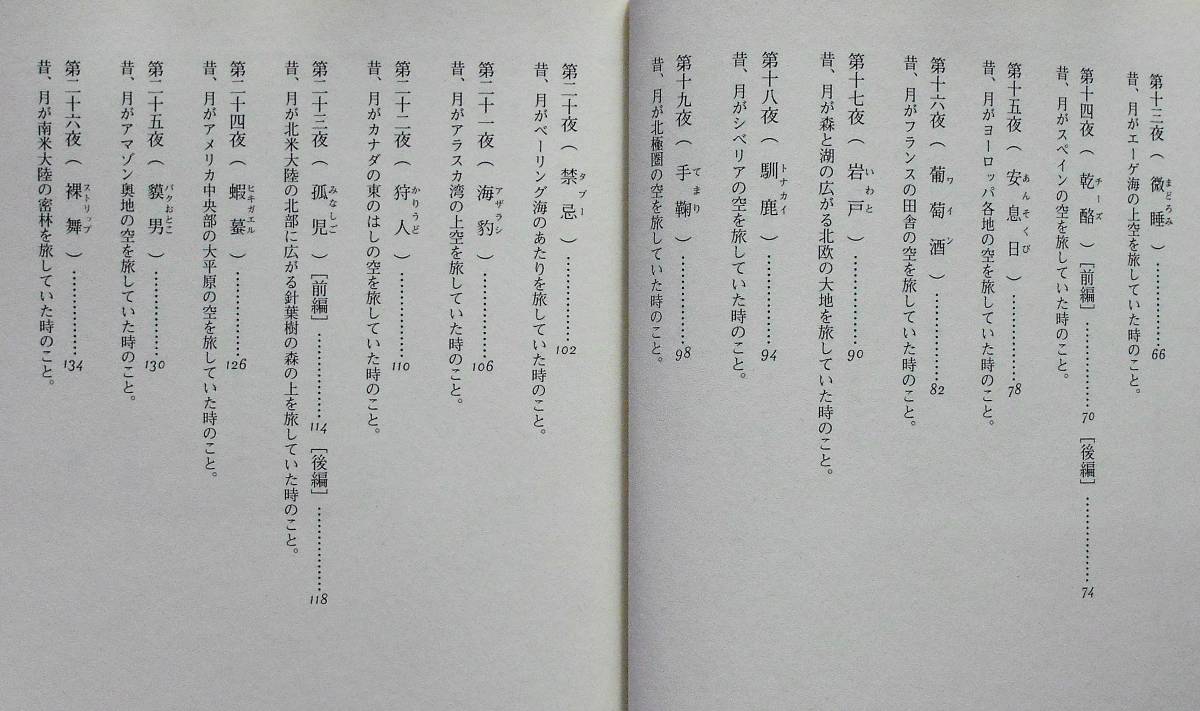 第十三夜（微睡まどろみ）……………66
昔、月がエーゲ海の上空を旅していた時のこと。
第十四夜（乾酪チーズ）［前編］……………70［後編］……………74
昔、月がスペインの空を旅していた時のこと。
第十五夜（安息日あんそくび）……………78
昔、月がヨーロッパ各地の空を旅していた時のこと。
第十六夜（葡萄酒ワイン）……………82
昔、月がフランスの田舎の空を旅していた時のこと。
第十七夜（岩戸いわと）……………90
昔、月が森と湖の広がる北欧の大地を旅していた時のこと。
第十八夜（馴鹿トナカイ）……………94
昔、月がシベリアの空を旅していた時のこと。
第十九夜（手鞠てまり）……………98
昔、月が北極圏の空を旅していた時のこと。
第二十夜（禁忌タブー）……………102
昔、月がベーリング海のあたりを旅していた時のこと。
第二十一夜（海豹アザラシ）……………106
昔、月がアラスカ湾の上空を旅していた時のこと。
第二十二夜（狩人かりうど）……………110
昔、月がカナダの東のはしの空を旅していた時のこと。
第二十三夜（孤児みなしご）［前編］……………114［後編］……………118
昔、月が北米大陸の北部に広がる針葉樹の森の上を旅していた時のこと。
第二十四夜（蝦蟇ヒキガエル）……………126
昔、月がアメリカ中央部の大平原の空を旅していた時のこと。
第二十五夜（貘男バクおとこ）……………130
昔、月がアマゾン奥地の空を旅していた時のこと。
第二十六夜（裸舞ストリップ）……………134
昔、月が南米大陸の密林を旅していた時のこと。